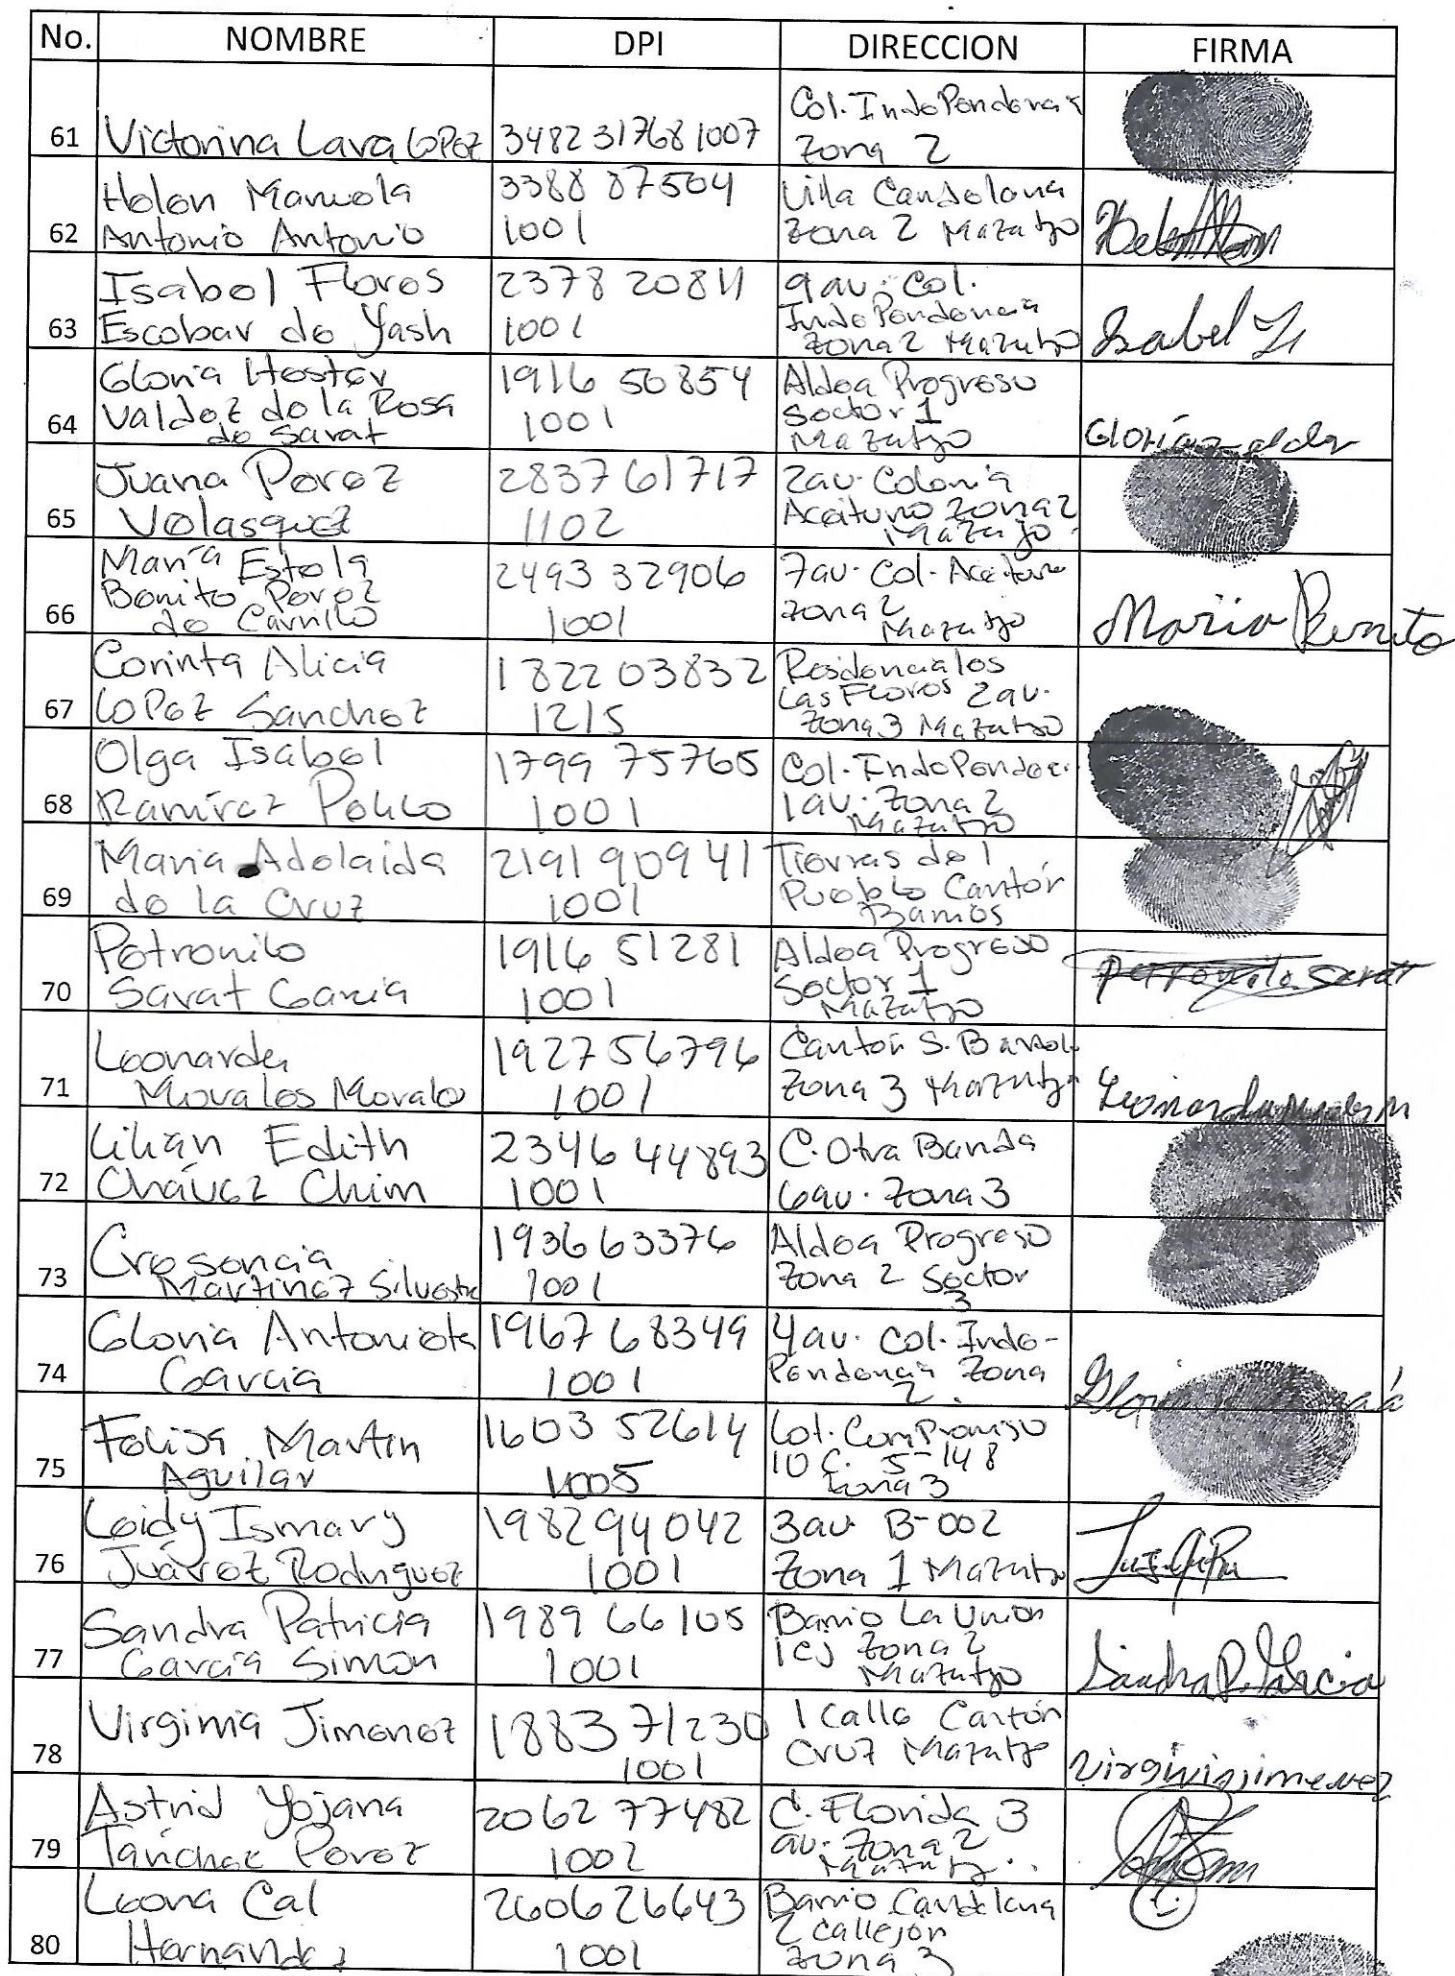 No. NOMBRE DPI DIRECCION FIRMA
61 Victorina Lara LoPez 3482 31768 1007 Col. IndePendencia Zona 2
62 Helen Manuela Antonio Antonio 3388 87504 1001 Villa Candelaria Zona 2 Mazatgo
63 Isabel Flores Escobar de Yash 2378 20811 1001 9 av. Col. IndePendencia Zona 2 Mazatgo Isabel
64 Gloria Hester Valdez de la Rosa de Sarat 1916 50854 1001 Aldea Progreso Sector 1 Mazatgo
65 Juana Perez Velasquez 2837 61717 1102 2av. Colonia Aceituno Zona 2 Mazatgo
66 María Estela Benito Perez de Carrillo 2493 32906 1001 7av. Col. Aceituno Zona 2 Mazatgo Maria Benito
67 Corinta Alicia LoPez Sanchez 1822 03832 1215 Residenciales Las Flores 2av. Zona 3 Mazatgo
68 Olga Isabel Ramírez 1799 75765 1001 Col. IndePenden. 1 av. Zona 2 Mazatgo
69 Maria Adelaida de la Cruz 2191 90941 1001 Tierras del Pueblo Cantón Barrios
70 Petronilo Sarat Garcia 1916 51281 1001 Aldea Progreso Sector 1 Mazatgo
71 Leonarda Morales Morales 1927 56796 1001 Cantón S. Bartolo Zona 3 Mazatgo
72 Lilian Edith Chávez Chim 2346 44893 1001 C. Otra Banda 6av. Zona 3
73 Cresencia Martinez Silvestre 1936 63376 1001 Aldea Progreso Zona 2 Sector 3
74 Gloria Antonieta Garcia 1967 68349 1001 4av. Col. Inde-Pendencia Zona 2.
75 Felisa Martin Aguilar 1603 52614 1005 Lot. ComPromiso 10 C. 5-148 Zona 3
76 Leidy Ismary Juárez Rodriguez 1982 94042 1001 3av B-002 Zona 1 Mazatgo
77 Sandra Patricia García Simon 1989 66105 1001 Barrio La Union Zona 2 Mazatgo Sandra P. García
78 Virginia Jimenez 1883 71230 1001 1 Calle Cantón Cruz Mazatgo virginia jimenez
79 Astrid Yojana Tánchez Perez 2062 77482 1002 C. Florida 3 av. Zona 2 Mazatg.
80 Leona Cal Hernandez 2606 26643 1001 Barrio Candelaria 2 callejón Zona 3